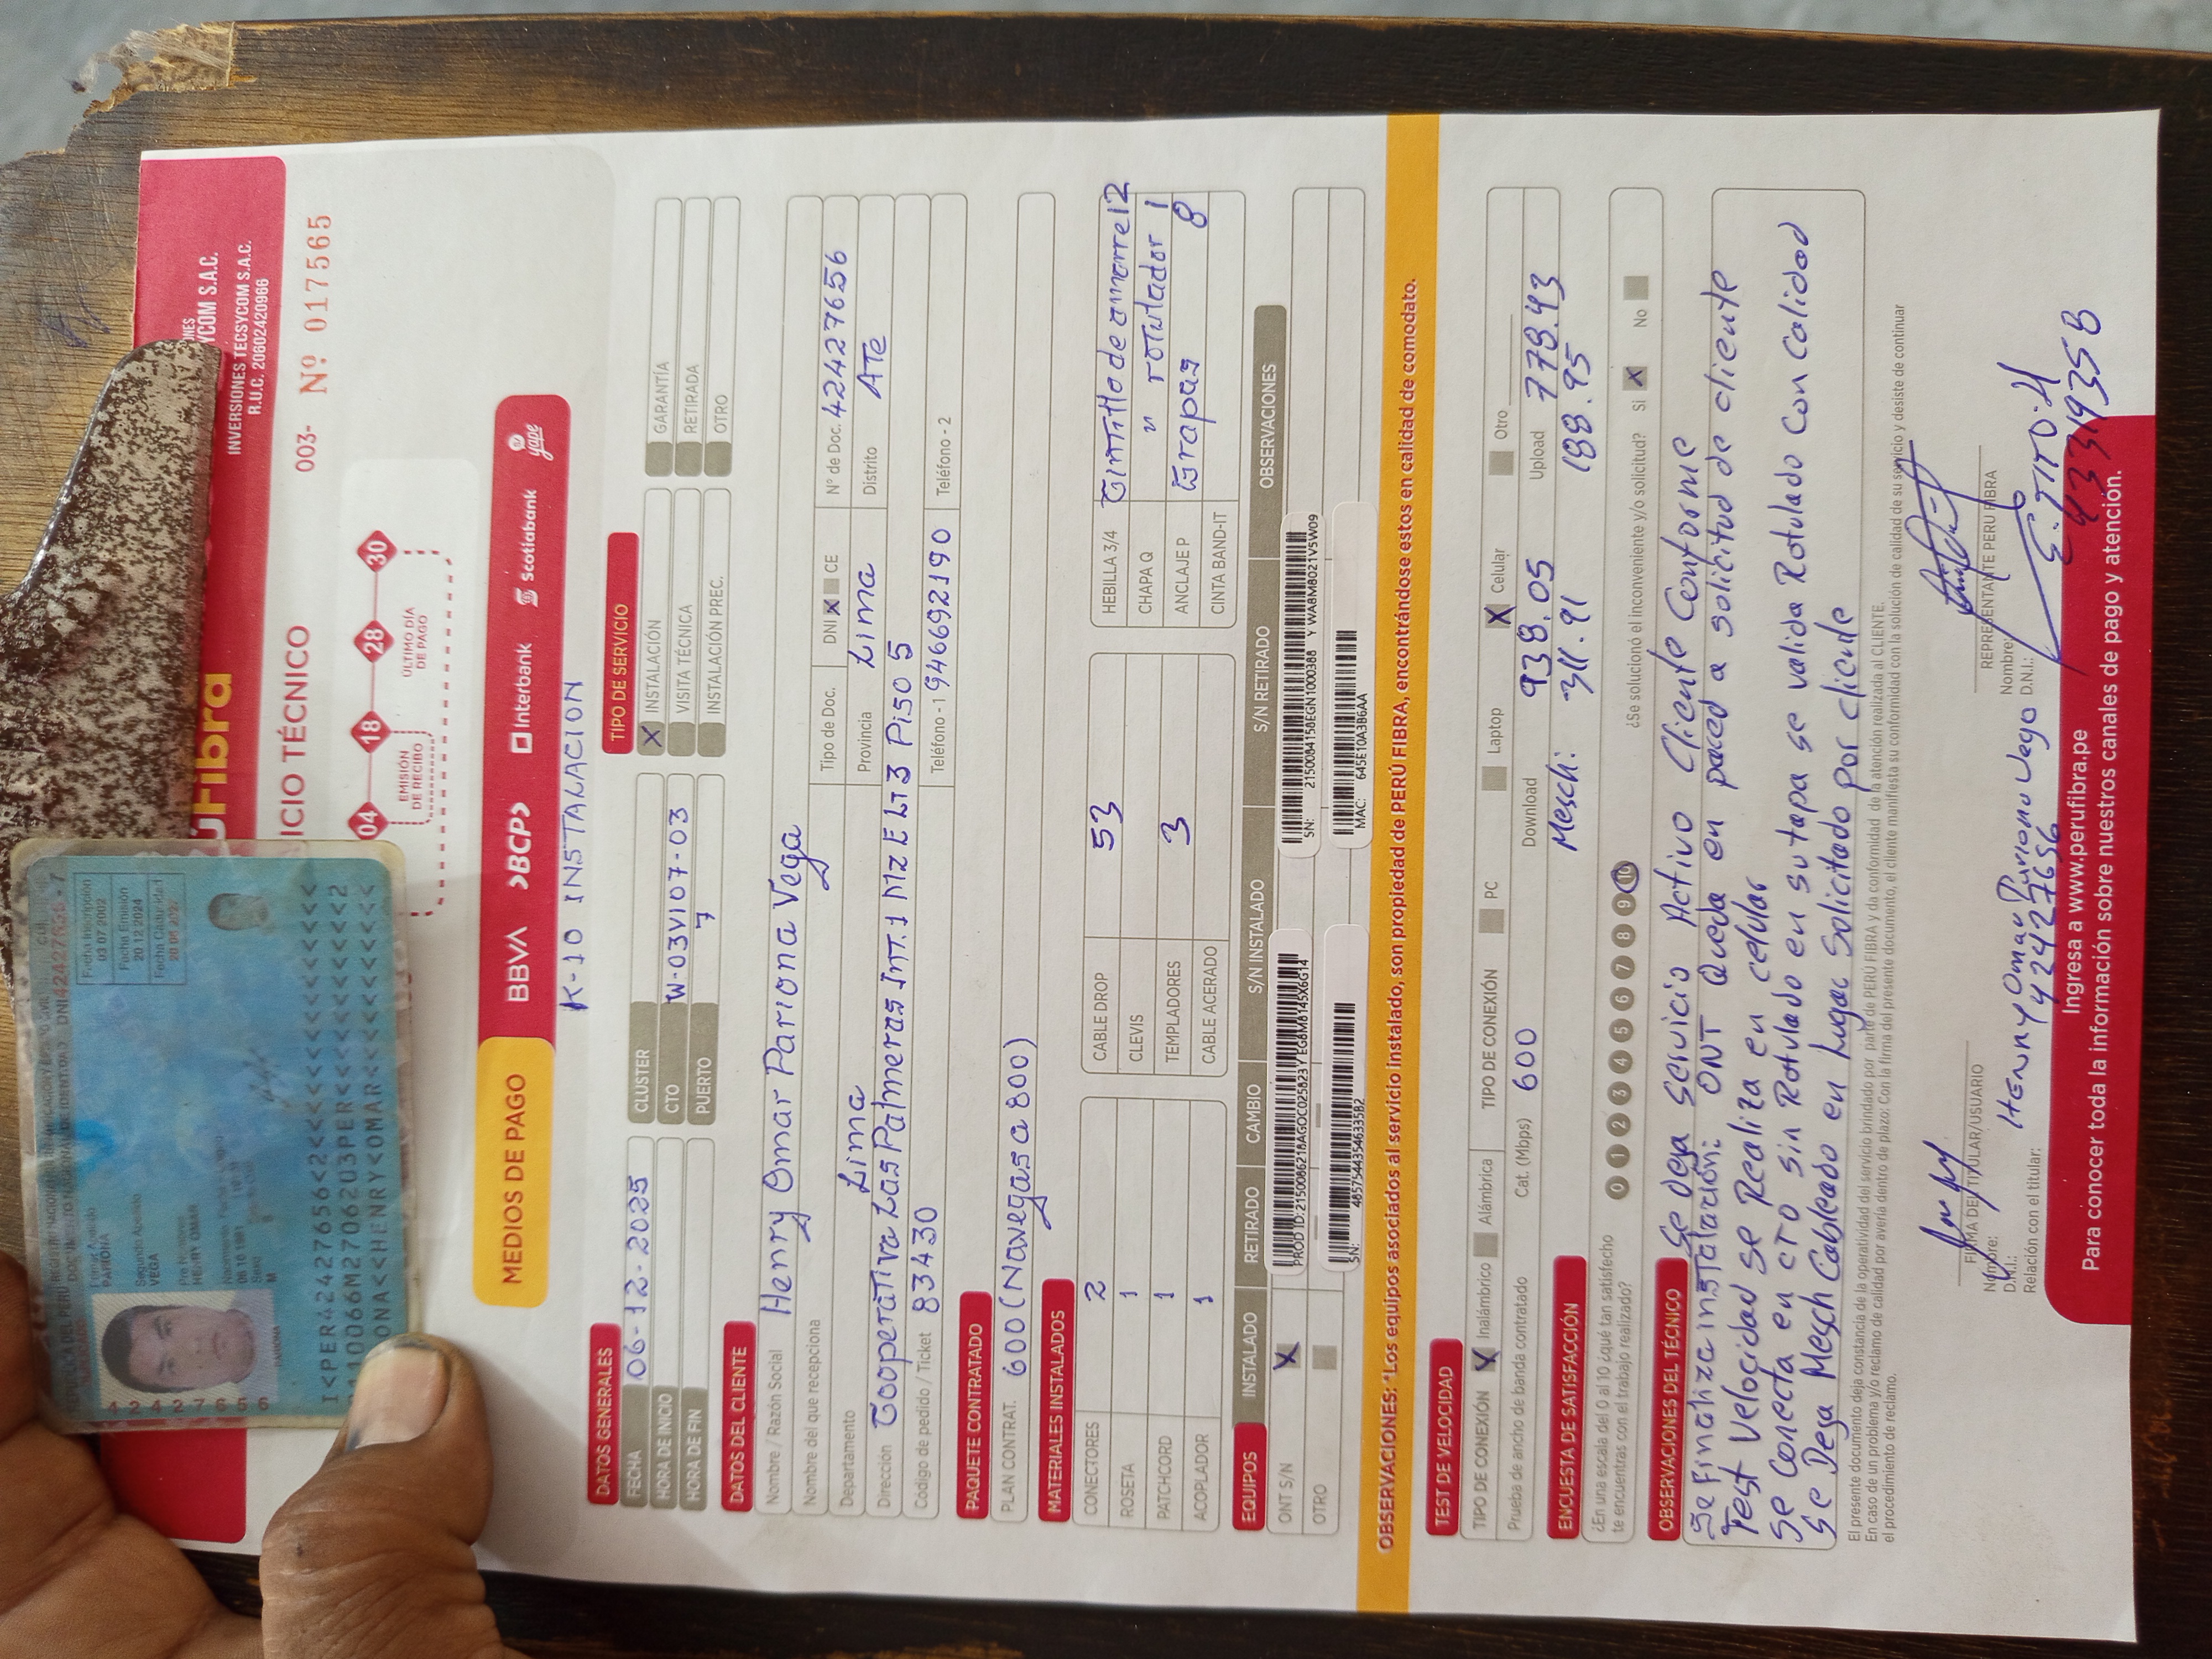 INVERSIONES TECSYCOM S.A.C.
R.U.C. 20602420966
ÚFibra
ICIO TÉCNICO
003- Nº 017565
04 18 28 30
EMISIÓN DE RECIBO
ÚLTIMO DÍA DE PAGO
MEDIOS DE PAGO
BBVA >BCP> Interbank scotiabank yape
K-10 INSTALACION
DATOS GENERALES
FECHA 06-12-2025
HORA DE INICIO
HORA DE FIN
CLUSTER
CTO W-03VI07-03
PUERTO 7
TIPO DE SERVICIO
X INSTALACIÓN GARANTÍA
VISITA TÉCNICA RETIRADA
INSTALACIÓN PREC. OTRO
DATOS DEL CLIENTE
Nombre / Razón Social Henry Omar Pariona Vega
Nombre del que recepciona Tipo de Doc. DNI X CE N° de Doc. 42427656
Departamento Lima Provincia Lima Distrito ATe
Dirección Cooperativa Las Palmeras Int.1 Mz E LT 3 Piso 5
Código de pedido / Ticket 83430 Teléfono - 1 946692190 Teléfono - 2
PAQUETE CONTRATADO
PLAN CONTRAT. 600 (Navegas a 800)
MATERIALES INSTALADOS
CONECTORES 2 CABLE DROP 53 HEBILLA 3/4 Cintillo de amarre 12
ROSETA 1 CLEVIS CHAPA Q " rotulador 1
PATCHCORD 1 TEMPLADORES 3 ANCLAJE P Grapas 8
ACOPLADOR 1 CABLE ACERADO CINTA BAND-IT
EQUIPOS INSTALADO RETIRADO CAMBIO S/N INSTALADO S/N RETIRADO OBSERVACIONES
ONT S/N X
PROD ID:2150086218AGOC025823 Y EG8M8145X6G14
SN: 4857544354633582
SN: 2150084158EGN1000388 Y WA8M8021V5W09
MAC: 645E10A3B6AA
OTRO
OBSERVACIONES: *Los equipos asociados al servicio instalado, son propiedad de PERÚ FIBRA, encontrándose estos en calidad de comodato.
TEST DE VELOCIDAD
TIPO DE CONEXIÓN X Inalámbrico Alámbrica TIPO DE CONEXIÓN PC Laptop X Celular Otro
Prueba de ancho de banda contratado Cat. (Mbps) 600 Download 938.05 Upload 778.43
Mesch: 311.91 188.95
ENCUESTA DE SATISFACCIÓN
¿En una escala del 0 al 10 ¿qué tan satisfecho
te encuentras con el trabajo realizado?
0 1 2 3 4 5 6 7 8 9 10
¿Se solucionó el inconveniente y/o solicitud? Si X No
OBSERVACIONES DEL TÉCNICO
Se deja Servicio Activo Cliente Conforme
Se Finaliza instalación: ONT Queda en pared a solicitud de cliente
Test Velocidad se Realiza en celular
Se Conecta en CTO sin Rotulado en su tapa se valida Rotulado con Calidad
Se Deja Mesch Cableado en Lugar Solicitado por cliente
El presente documento deja constancia de la operatividad del servicio brindado por parte de PERÚ FIBRA y da conformidad de la atención realizada al CLIENTE.
En caso de un problema y/o reclamo de calidad por avería dentro de plazo: Con la firma del presente documento, el cliente manifiesta su conformidad con la solución de calidad de su servicio y desiste de continuar
el procedimiento de reclamo.
FIRMA DEL TITULAR/USUARIO
Nombre: Henry Omar Pariona Vega
D.N.I.: 42427656
Relación con el titular:
REPRESENTANTE PERÚ FIBRA
Nombre: E. TITO. H
D.N.I.: 43319358
Ingresa a www.perufibra.pe
Para conocer toda la información sobre nuestros canales de pago y atención.
REPÚBLICA DEL PERÚ
DNI 42427656 - 7
Primer Apellido
PARIONA
Segundo Apellido
VEGA
Pre Nombres
HENRY OMAR
Fecha Inscripción
03 07 2002
Fecha Emisión
20 12 2024
Fecha Caducidad
42427656
I<PER42427656<2<<<<<<<<<<<<<<<
HENRY<OMAR<<<<<<<<